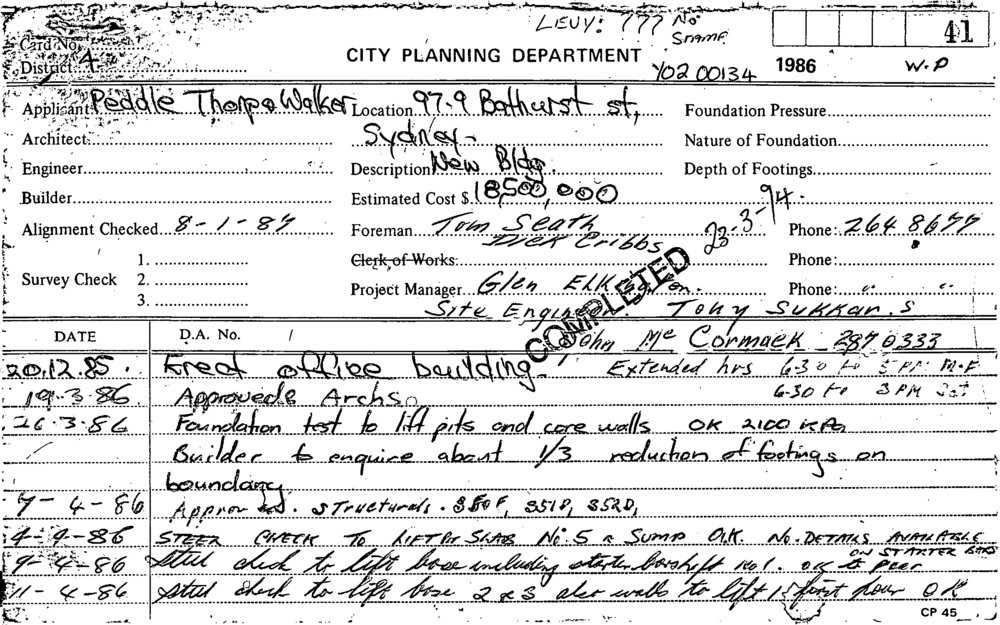 LEVY: ??? No
STAMP
41
Card No.
District 4
CITY PLANNING DEPARTMENT
Y02 00134
1986
W.P
Applicant Peddle Thorpe Walker
Location 97-9 Bathurst st,
Foundation Pressure
Architect
Sydney
Nature of Foundation
Engineer
Description New Bldg.
Depth of Footings
Builder
Estimated Cost $ 18,500,000
Alignment Checked 8-1-87
Foreman Tom Seath
23-3-94.
Phone: 264 8677
Dick Cribbs
Survey Check
1.
2.
3.
Clerk of Works:
Phone:
Project Manager Glen
Phone: " "
COMPLETED
Site Engineer Tony Sukkar.S
DATE
D.A. No. /
John Mc Cormack 2370333
20.12.85. Erect office building. Extended hrs 6-30 to 5 PM M-F
19.3.86 Approved Archs. 6-30 to 3 PM Sat
26.3.86 Foundation test to lift pits and core walls OK 2100 KPa
Builder to enquire about 1/3 reduction of footings on
boundary
7-4-86 Structurals. S50F, S51D, S52D,
4-4-86 STEER CHECK TO LIFT PIT SLAB No. 5 & SUMP O.K. No. DETAILS AVAILABLE
ON STARTER BARS
9-4-86 Steel check to lift base including starter bars lift No 1. OK to pour
11-4-86 Steel check to lift base 2 & 3 also walls to lift 1 first pour OK
CP 45